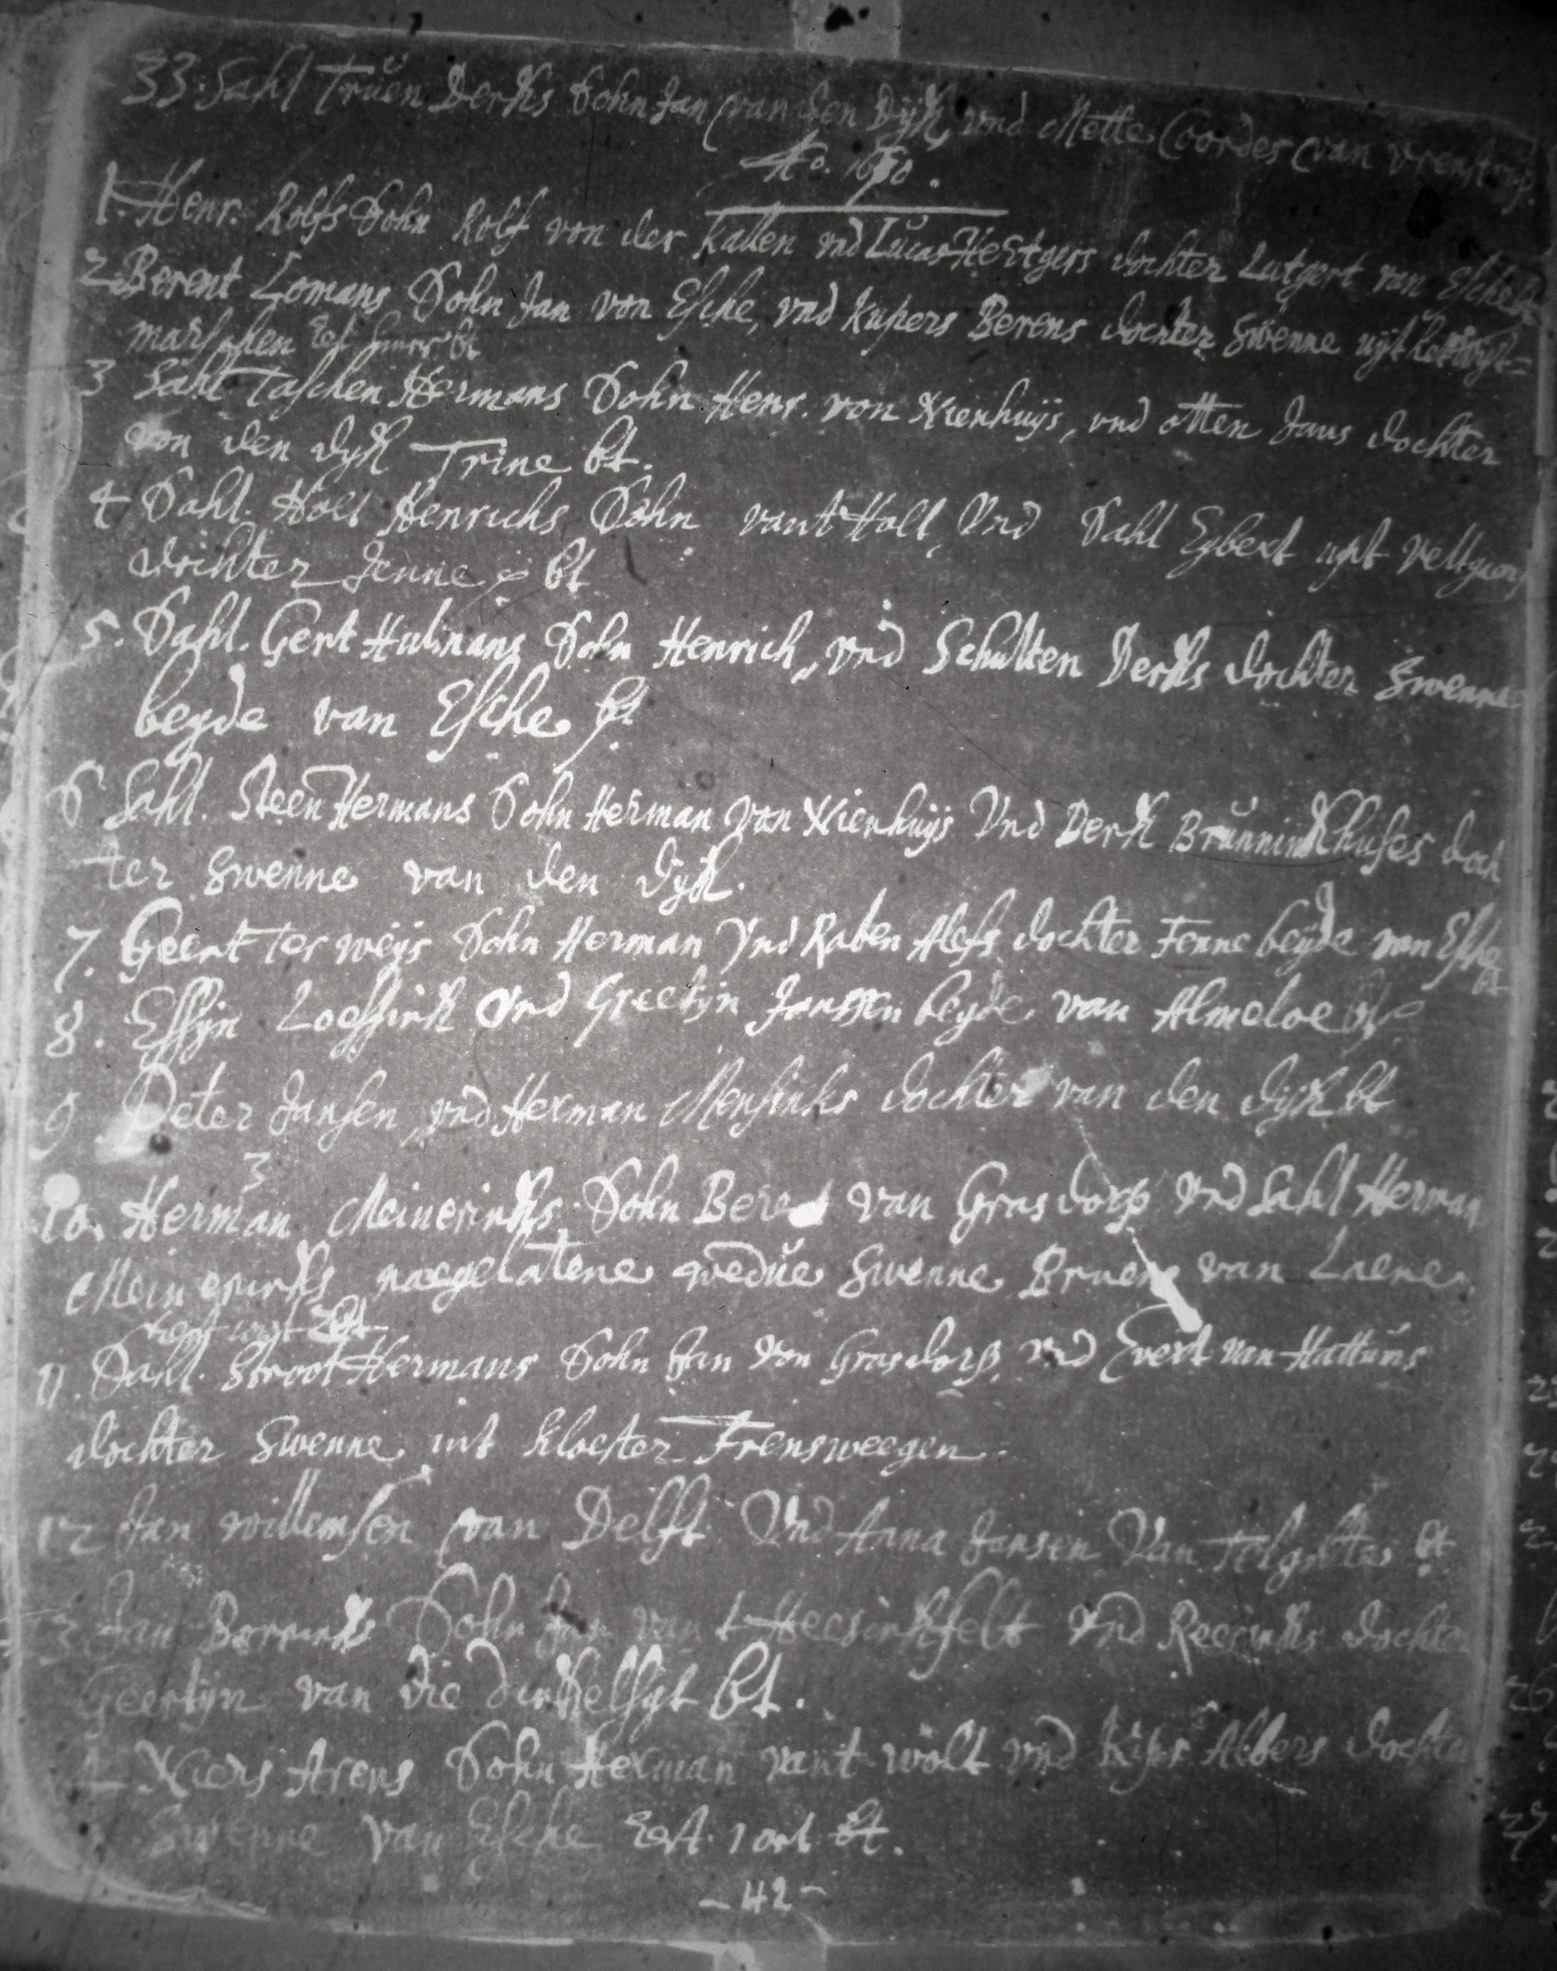 33. Sahl Trüen Derks Sohn Jan van den Dÿk, und Mette Coordes van
Ao. 1650.
1. Henr. Rolfs Sohn Rolf von der Kallen vnd Lucas dochter Lutgert von Esche
2. Berent Lomans Sohn Jan von Esche, vnd Kupers Berens dochter Swenne uÿt
marschen
3 Sahl Taschen Hermans Sohn Henr. von Nienhuÿs, vnd otten Jans dochter
von den dyk Trine bt.
4 Sahl. Holt Henrichs Sohn vant Holt, Vnd Sahl Egbert
dochter Jenne bt
5. Sahl. Gert Hulmans Sohn Henrich, vnd Schulten Derks dochter Swenne
beyde van Esche bt
6 Sahl. Steen Hermans Sohn Herman van Nienhuÿs Vnd Derk Brünninkhuses doch
ter Swenne van den dÿk.
7. Geert ter weÿs Sohn Herman Vnd Raben Alefs dochter Fenne beÿde van Esche bt
8. Essÿn Loessink Vnd Greetÿn Janssen beyde van Almeloe bt
9. Peter Jansen vnd Herman Mensinks dochter van den dÿk bt
10. Herman Meinerinks Sohn van Grasdorp vnd Sahl Herman
Meinerinks naegelatene wedüe Swenne van Laere.
11. Sahl. Stroot Hermans Sohn Jan von Grasdorp, vnd Evert van Hattums
dochter Swenne int Kloester Frensweegen.
12 Jan willemsen van Delft Vnd Anna Jansen Van Telgette bt
3 Jan Sohn Jan van t Vnd Reerinks dochter
Geertÿn van die bt.
4 Niers Arens Sohn Herman vant wolt vnd Albers dochter
Swenne van Esche 1 ort bt.
- 42 -